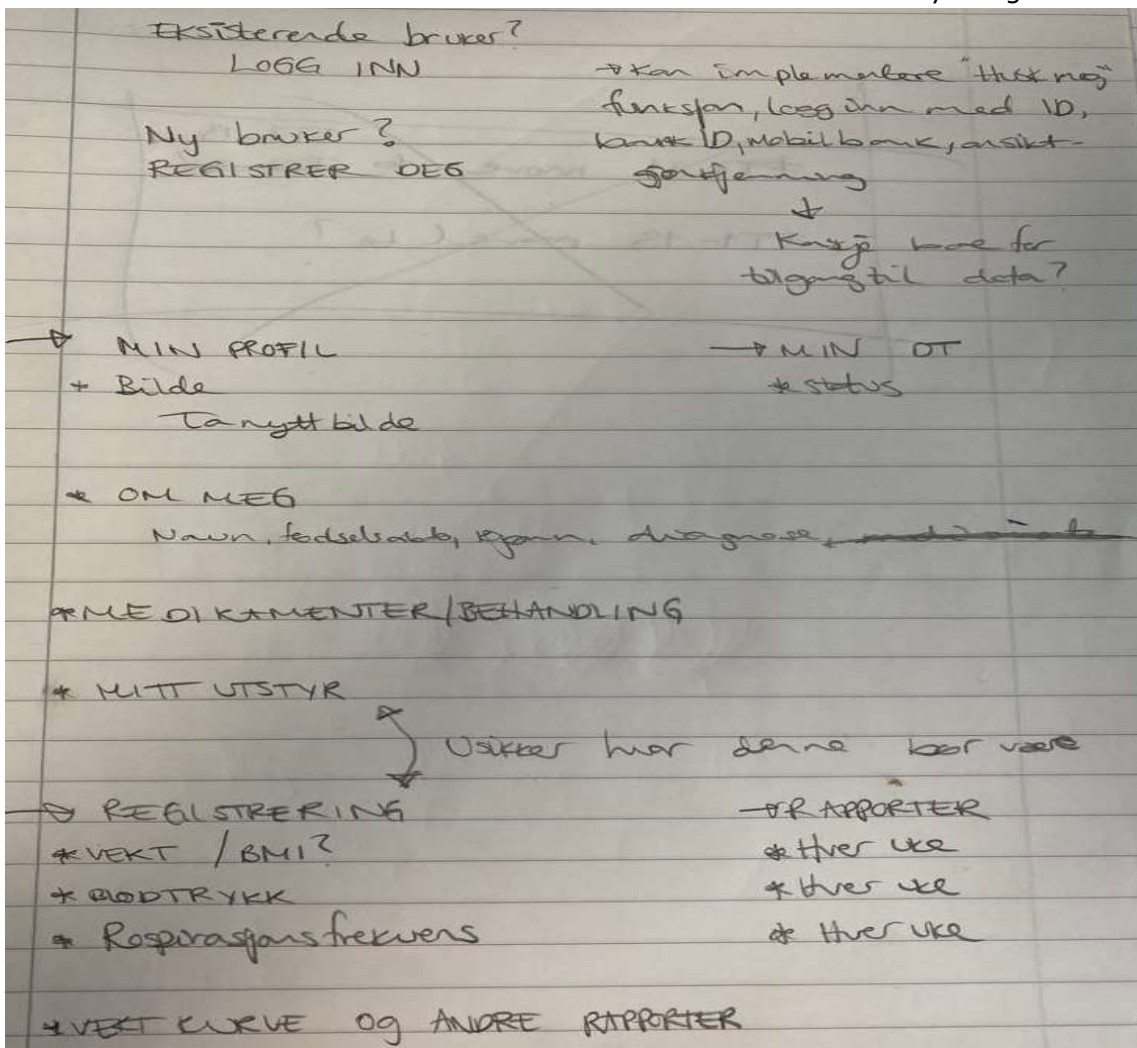 Eksisterende bruker?
LOGG INN
→ Kan implementere "Husk meg"
funksjon, logg inn med ID,
bank ID, Mobilbank, ansikt-
gjenkjenning
Ny bruker?
REGISTRER DEG
↓
Kanskje bare for
tilgang til data?
→ MIN PROFIL
* Bilde
Ta nytt bilde
→ MIN OT
* status
* OM MEG
Navn, fødselsdato, kjønn, diagnose,
* MEDIKAMENTER/BEHANDLING
* MITT UTSTYR
Usikker hvor denne bør være
→ REGISTRERING
* VEKT / BMI?
* BLODTRYKK
* Respirasjonsfrekvens
→ RAPPORTER
* Hver uke
* Hver uke
* Hver uke
* VEKT KURVE og ANDRE RAPPORTER